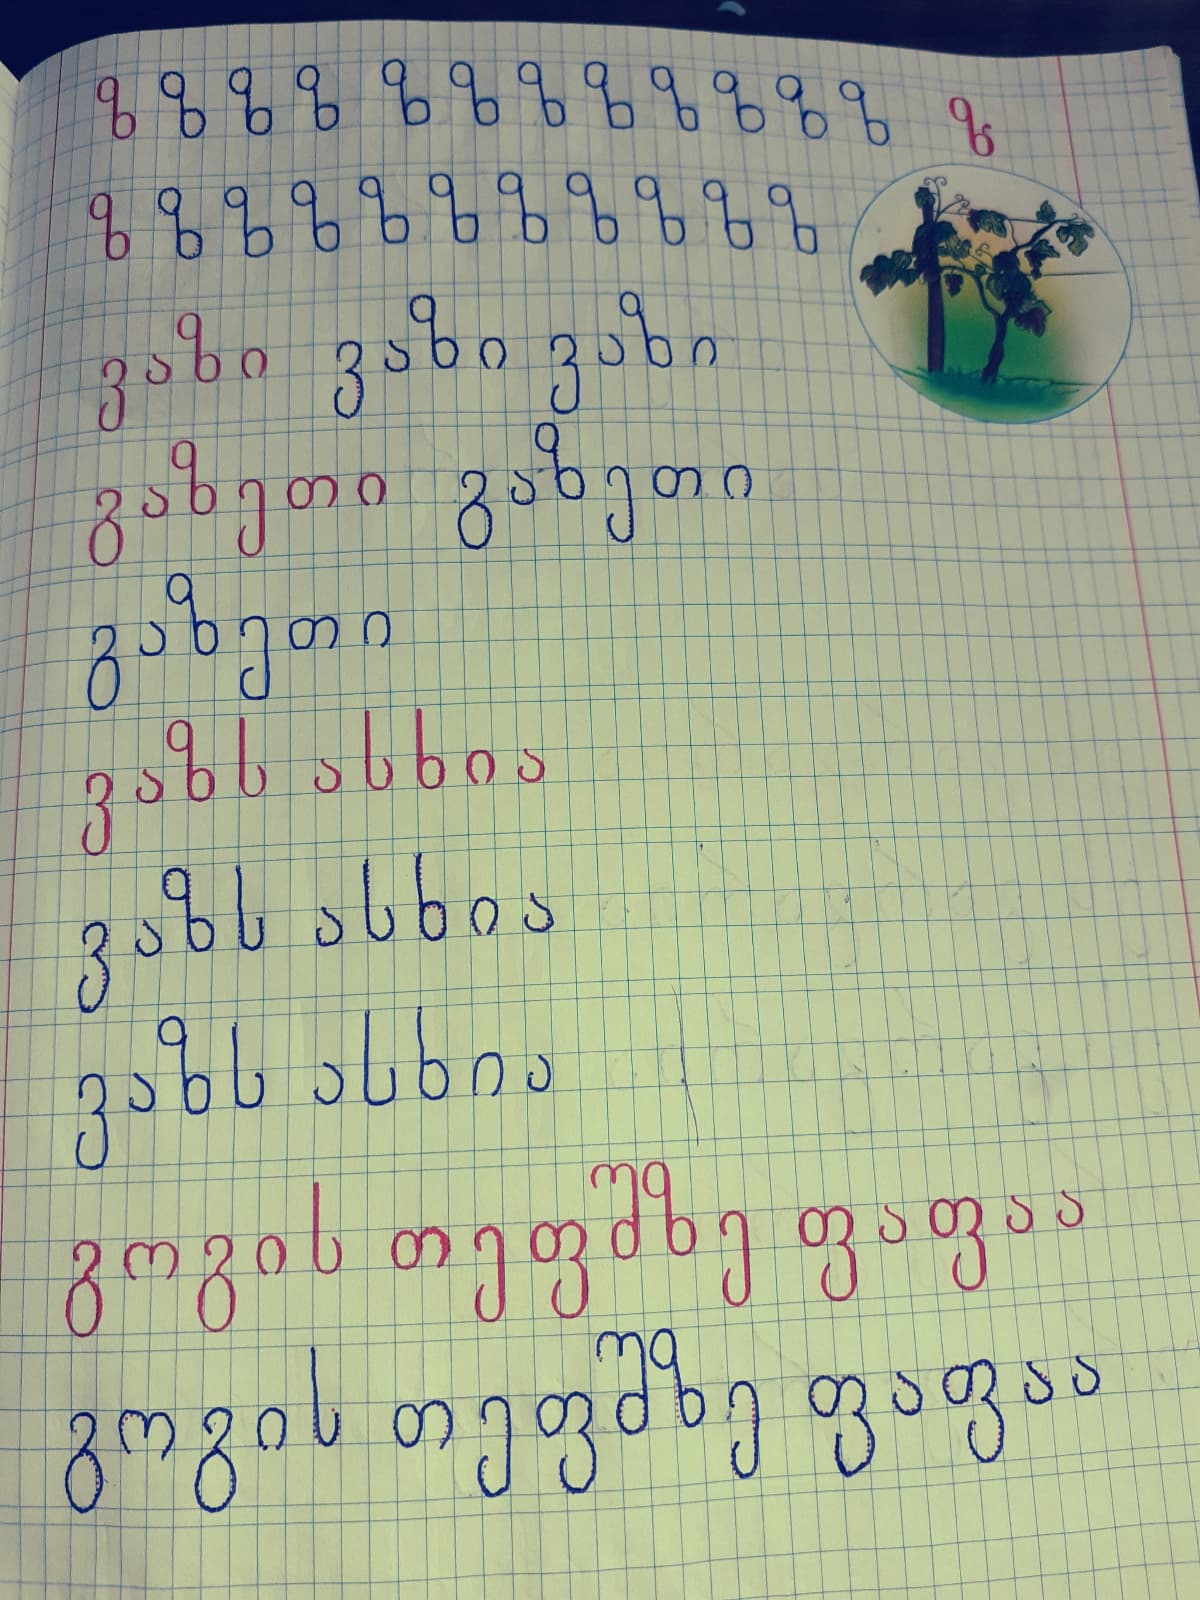 ზ ზ ზ ზ ზ ზ ზ ზ ზ ზ ზ ზ ზ
ზ ზ ზ ზ ზ ზ ზ ზ ზ ზ ზ
ვაზი ვაზი ვაზი
გაზეთი გაზეთი
გაზეთი
ვაზს ასხია
ვაზს ასხია
ვაზს ასხია
გოგის თეფშზე ფაფაა
გოგის თეფშზე ფაფაა